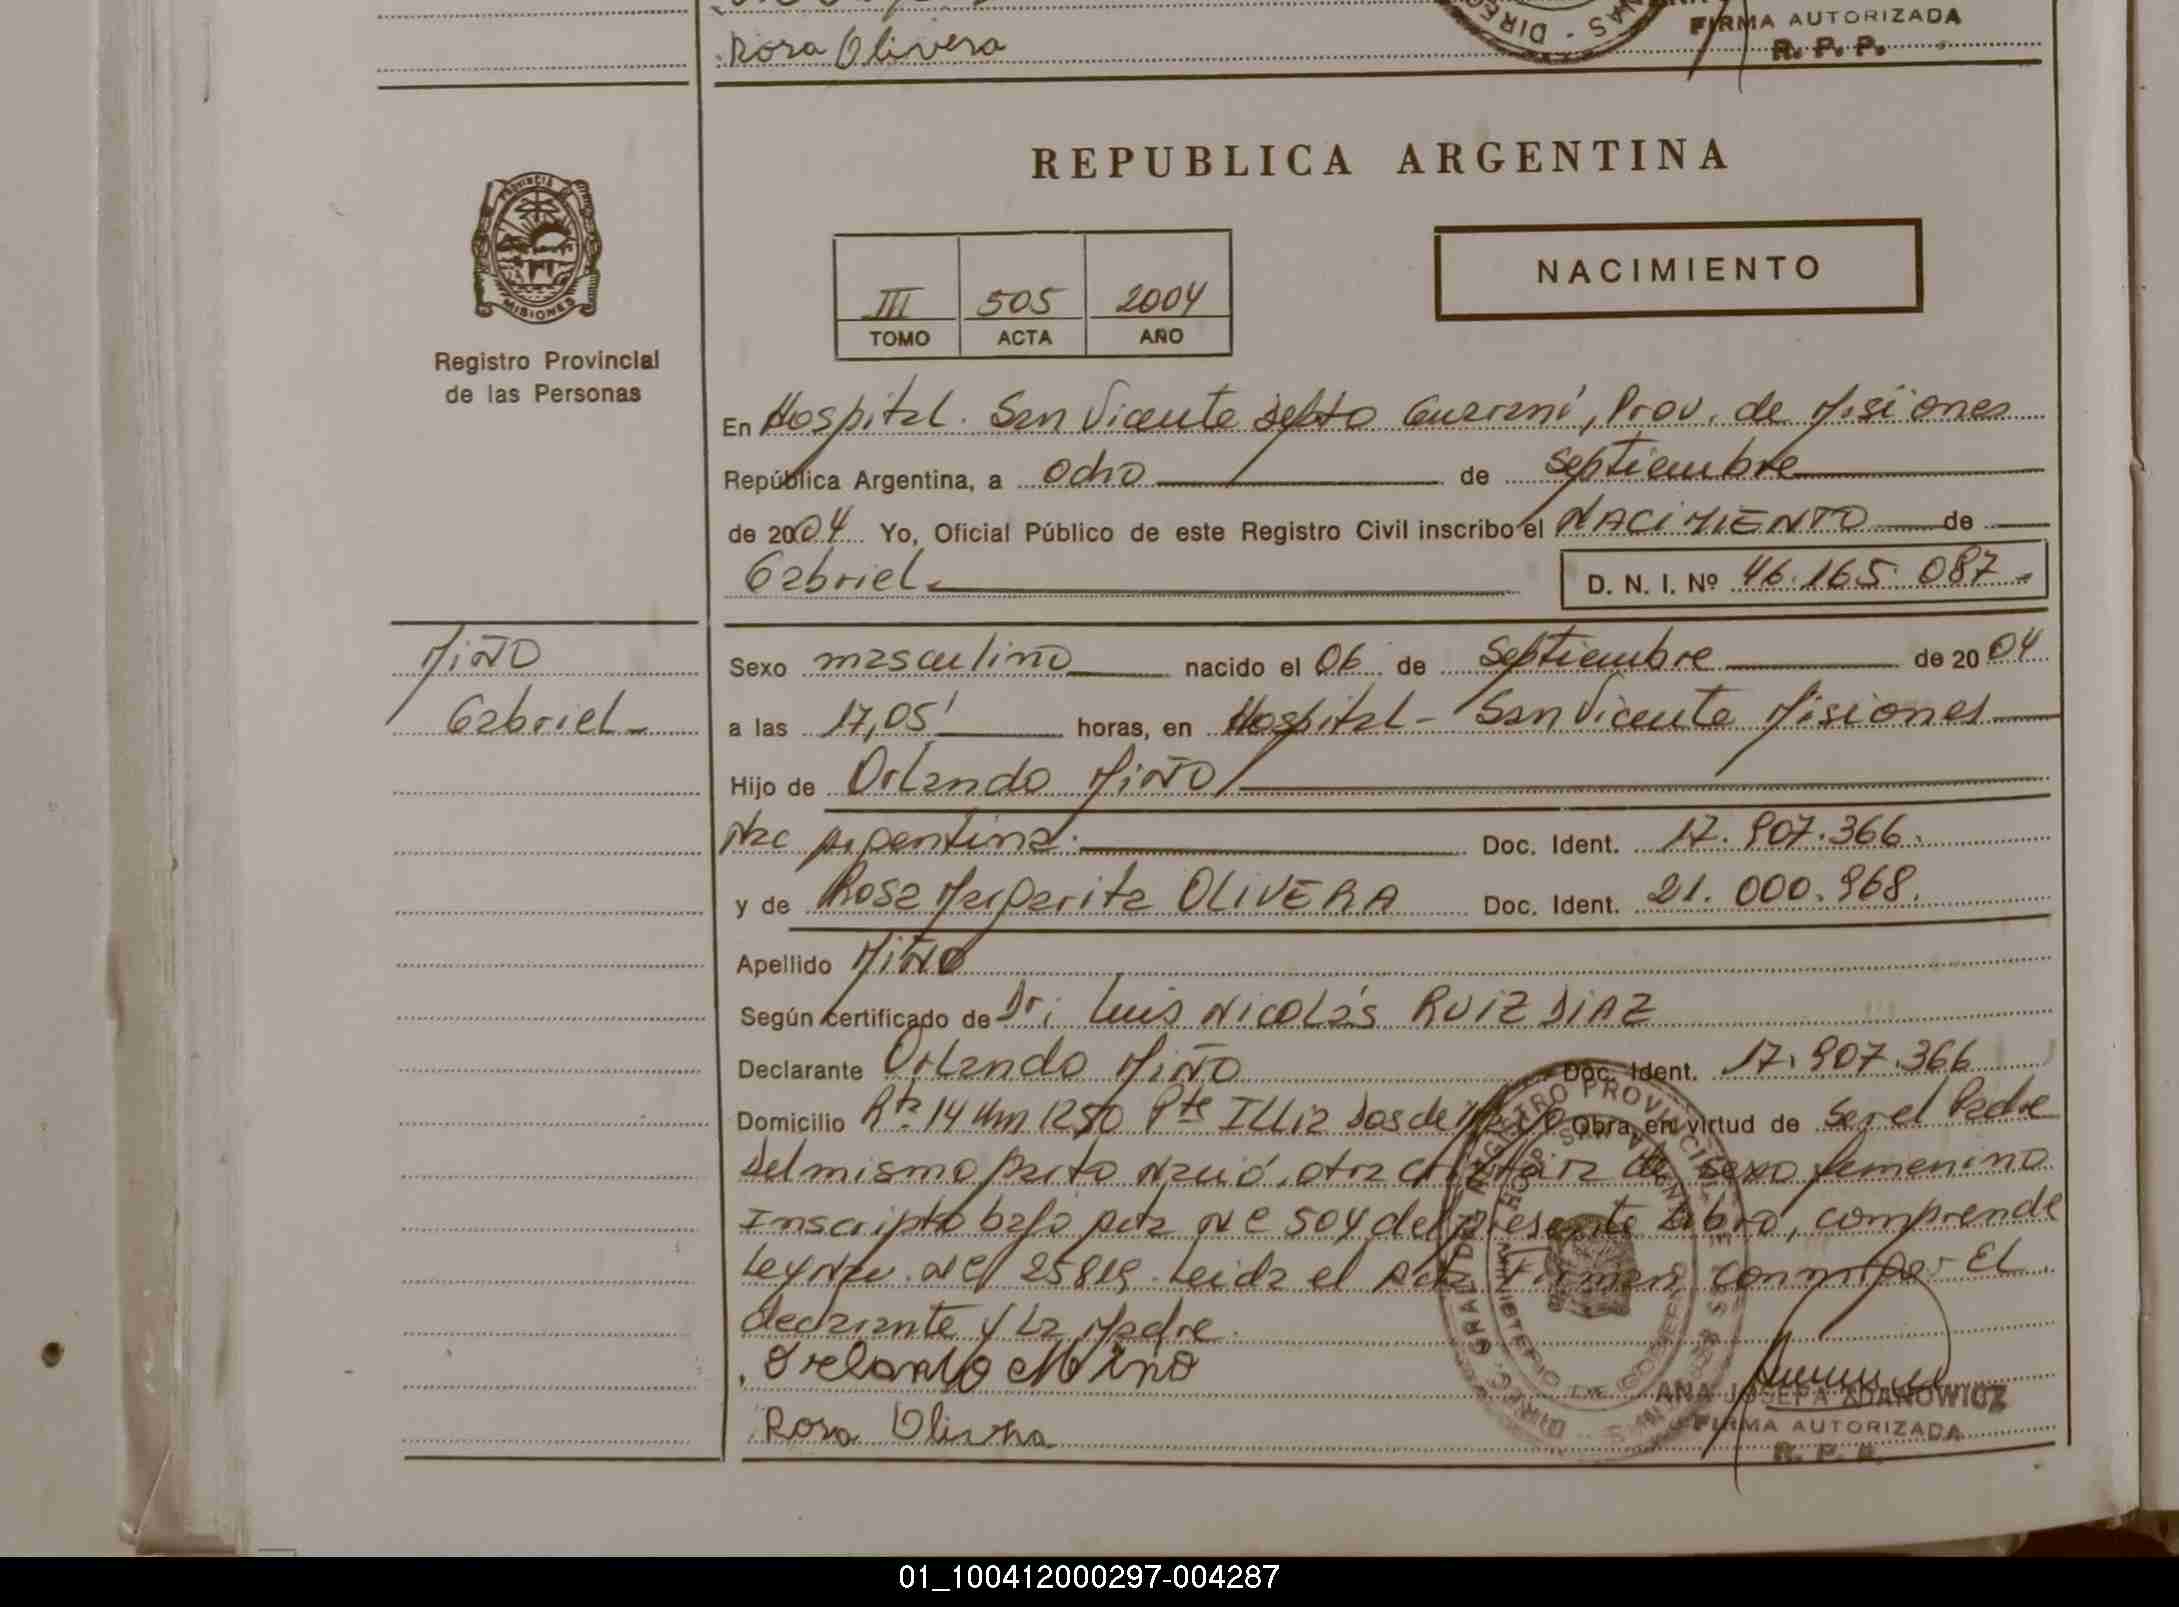 Rosa Olivera
FIRMA AUTORIZADA
R. P. P.
REPUBLICA ARGENTINA
NACIMIENTO
III 505 2004
TOMO ACTA AÑO
PROVINCIA
MISIONES
Registro Provincial
de las Personas
En Hospital. San Vicente Depto Guaraní, Prov. de Misiones
República Argentina, a ocho de Septiembre
de 2004 Yo, Oficial Público de este Registro Civil inscribo el NACIMIENTO de
Gabriel D. N. I. Nº 46.165.087
MiÑO
Gabriel
Sexo masculino nacido el 06 de Septiembre de 2004
a las 17,05' horas, en Hospital - San Vicente Misiones
Hijo de Orlando MiÑO
Nac Argentina. Doc. Ident. 17.907.366.
y de Rosa Margarita OLIVERA Doc. Ident. 21.000.968.
Apellido MiÑO
Según certificado de Dr; Luis Nicolás RUIZ DIAZ
Declarante Orlando MiÑO Doc. Ident. 17.907.366
Domicilio Rta. 14 Km 1250 Pte ILLia Dos de Obra en virtud de Ser el Padre
Del mismo parto nació, otra criatura de sexo femenino
Inscripto bajo Acta Nº 504 del presente Libro, comprende
Ley Nac. Nº 25819. Leida el Acta Firman conmigo El
declarante y La Madre.
Orlando Miño
Rosa Olivera
ANA JOSEFA ZDANOWICZ
FIRMA AUTORIZADA
R. P. P.
01_100412000297-004287